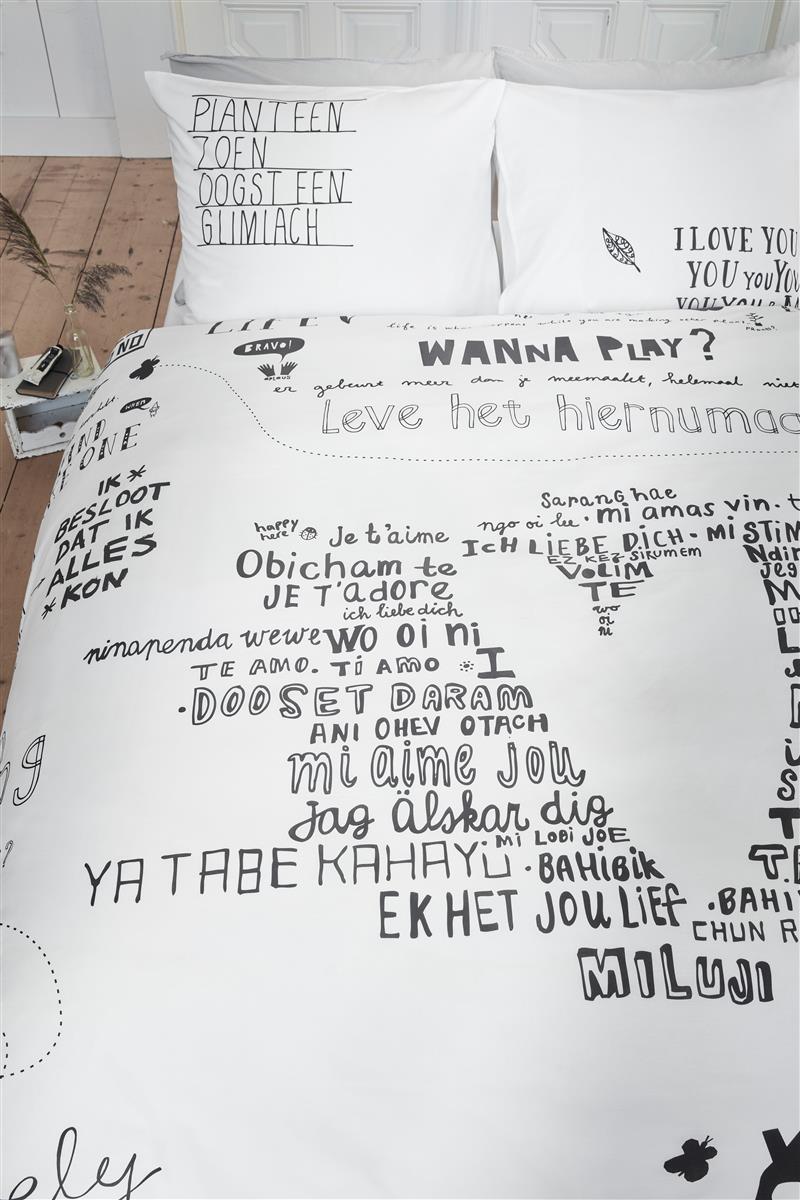 PLANT EEN
ZOEN
OOGST EEN
GLIMLACH
I LOVE YOU
YOU YOU YOU
YOU YOU &
life is what happens while you are making other plans
BRAVO!
APPLAUS
WANNA PLAY?
er gebeurt meer dan je meemaakt, helemaal niet
Leve het hiernumaa
IK
BESLOOT
DAT IK
ALLES
KON
happy
here!
Je t'aime
Obicham te
JE T'adore
ich liebe dich
ninapenda wewe WO oi ni
TE AMO. Ti AMO I
·DOOSET DARAM
ANI OHEV OTACH
mi aime jou
Jag Älskar dig
Mi LOBI JOE
YA TABE KAHAYU ·BAHIBIK
EK HET JOU LIEF
Sarang hae
ngo oi lee · mi amas vin.
ICH LIEBE DICH - Mi STIM
EZ KEZ SIRUMEM
VOLIM
TE
wo
oi
ni
Ndin
Jeg
·BAHI
CHUN R
MILUJI
ely